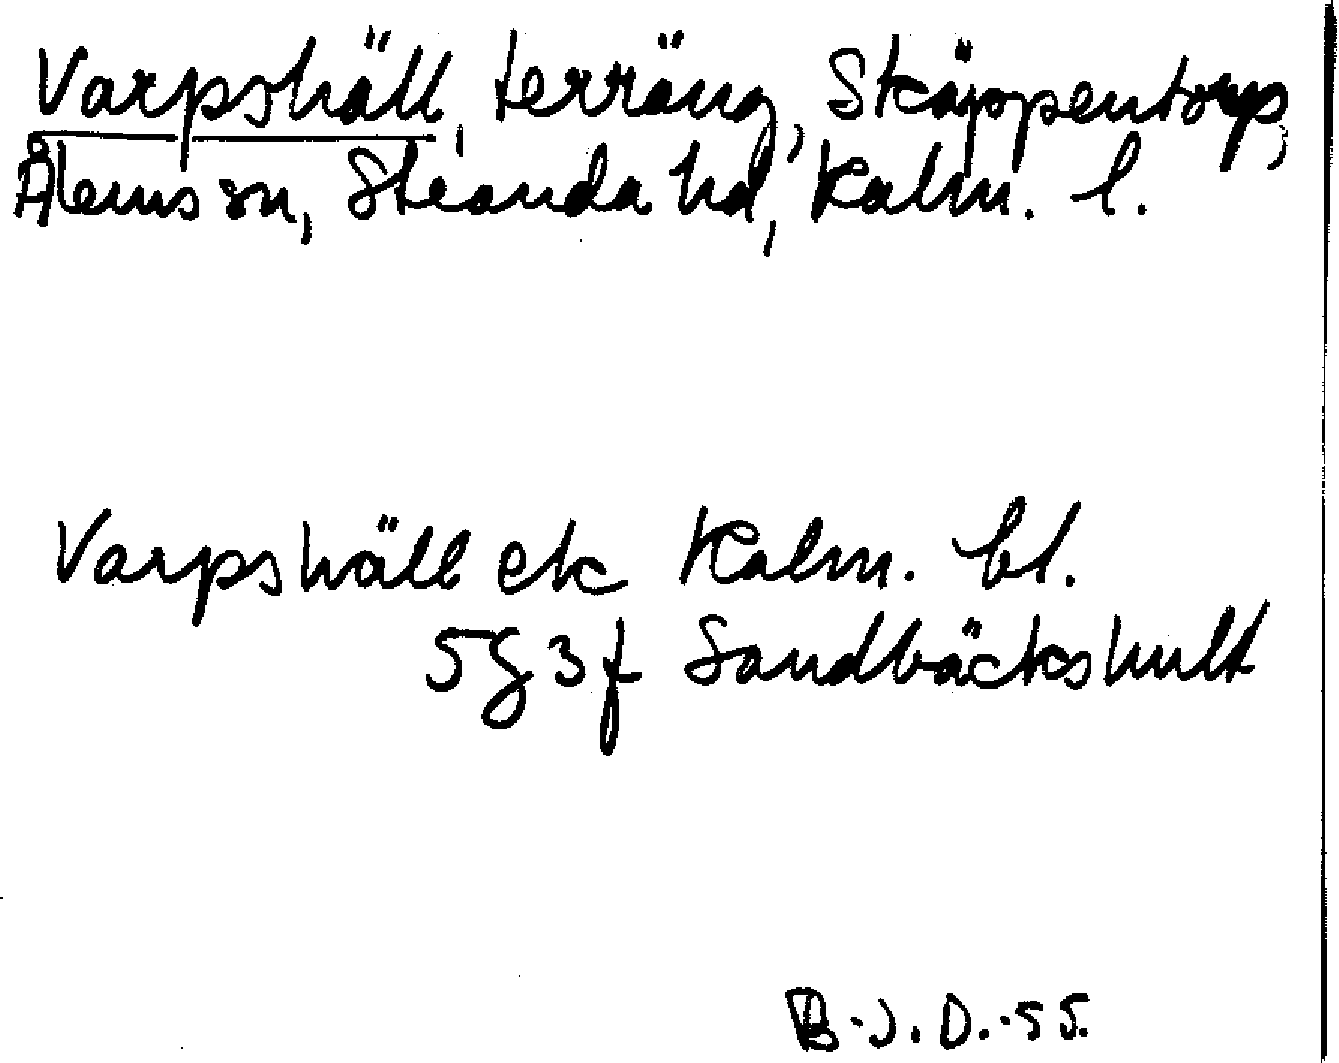 Varpshäll, terräng, Skäppentorp,
Ålems sn, Stranda hd, Kalm. l.
Varpshäll ek Kalm. bl.
5G 3f Sandbäckshult
B.J.D.-55.